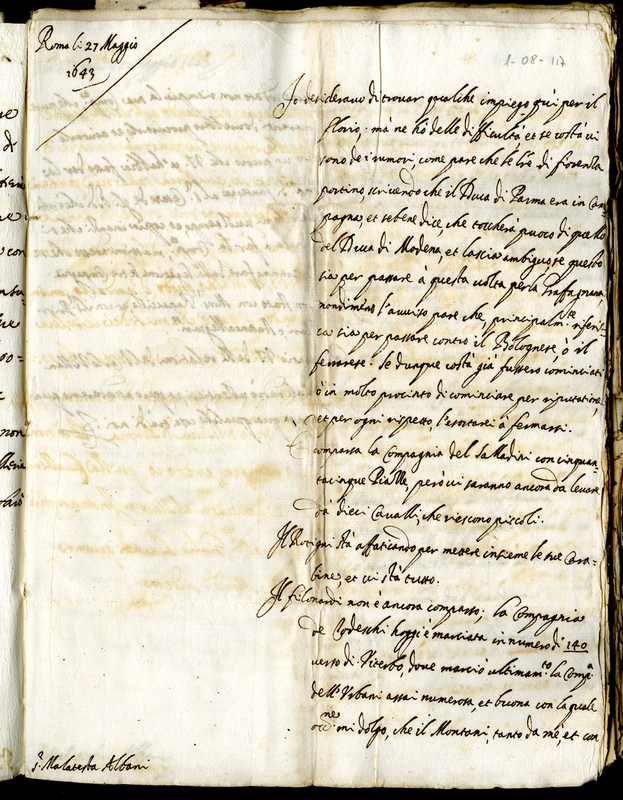 Roma li 27 Maggio
1643
1-08-117
Io desideravo di trovar qualche impiego quì per il
Florio, mà ne hò delle difficultà et se costà vi
sono de i rumori, come pare che le lre di fiorenza
portino, scrivendo che il Duca di Parma era in Cam
pagna, et sebene dice, che toccherà puoco di quello
del Duca di Modena, et lascia ambiguo se questo
sia per passare à questa volta per la Graffagnana
nondimeno l'avviso pare che, principalmte riferis=
ca sia per passare contro il Bolognese, ò il
ferrarese. Se dunque costà già fussero cominciati
ò in molto procinto di cominciare per riputatione,
et per ogni rispetto, l'esortarei à fermarsi.
Comparsa la Compagnia del Salladini con cinquan=
tacinque Piazze, però vi saranno ancora da levare
da dieci Cavalli, che riescono piccoli.
Il stà affaticando per mettere insieme le sue Cara=
bine, et vi stà tutto.
Il filonardi non è ancora comparso; la Compagnia
de Todeschi hoggi è marciata in numero di 140
verso di Viterbo, dove marciò ultimamte la Compa
dell' Urbani assai numerosa, et buona con la quale
occne mi dolgo, che il Montani, tanto da mè, et con
Malatesta Albani